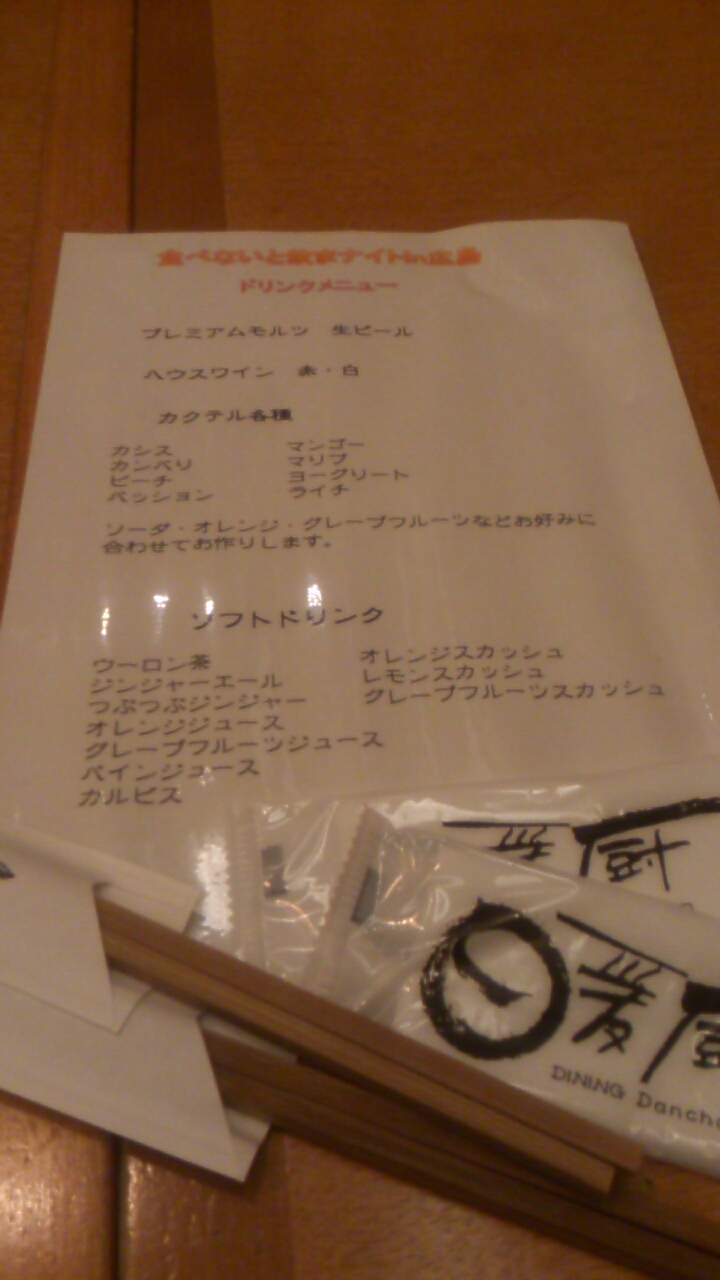 食べないと飲まナイトin広島
ドリンクメニュー
プレミアムモルツ 生ビール
ハウスワイン 赤・白
カクテル各種
カシス マンゴー
カンパリ マリブ
ピーチ ヨーグリート
パッション ライチ
ソーダ・オレンジ・グレープフルーツなどお好みに
合わせてお作りします。
ソフトドリンク
ウーロン茶 オレンジスカッシュ
ジンジャーエール レモンスカッシュ
つぶつぶジンジャー グレープフルーツスカッシュ
オレンジジュース
グレープフルーツジュース
パインジュース
カルピス
厨
暖厨
DINING Danch